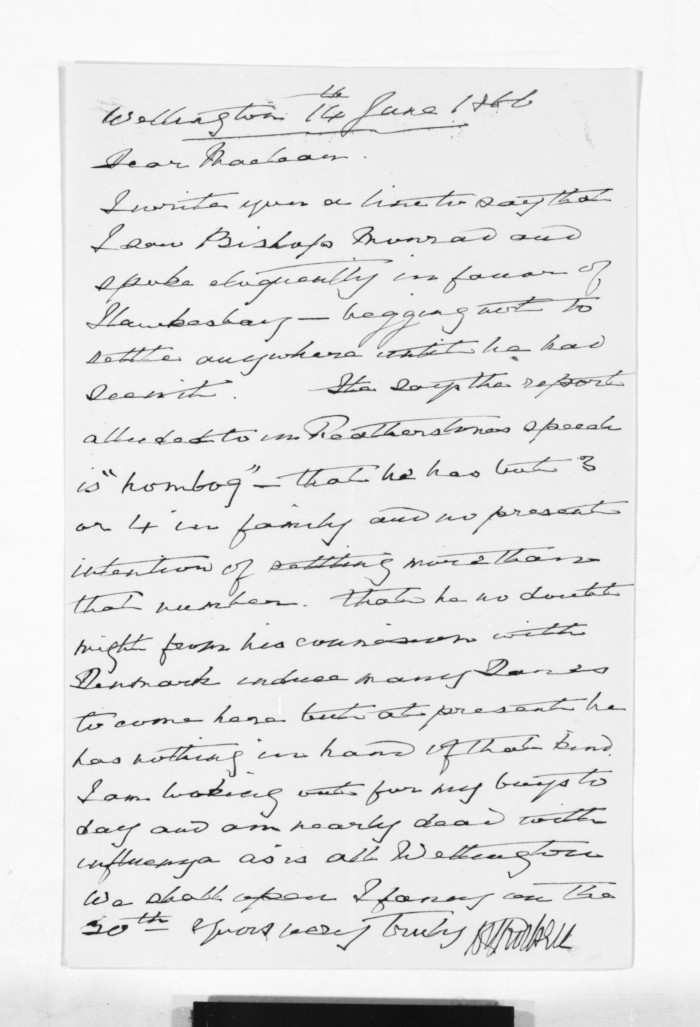 Wellington 14th June 1866
Dear Maclean.
I write you a line to say that
I saw Bishop Monrad and
spoke eloquently in favor of
Hawkesbay — begging not to
settle anywhere until he had
seen it. He says the report
alluded to in Featherstones speech
is "hombog" — that he has but 3
or 4 in family and no present
intention of settling more than
that number. That he no doubt
might from his connexion with
Denmark induce many Danes
to come here but at present he
has nothing in hand of that kind.
I am looking out for my boys to
day and am nearly dead with
influenza as is all Wellington
We shall open I fancy on the
30th Yours very truly